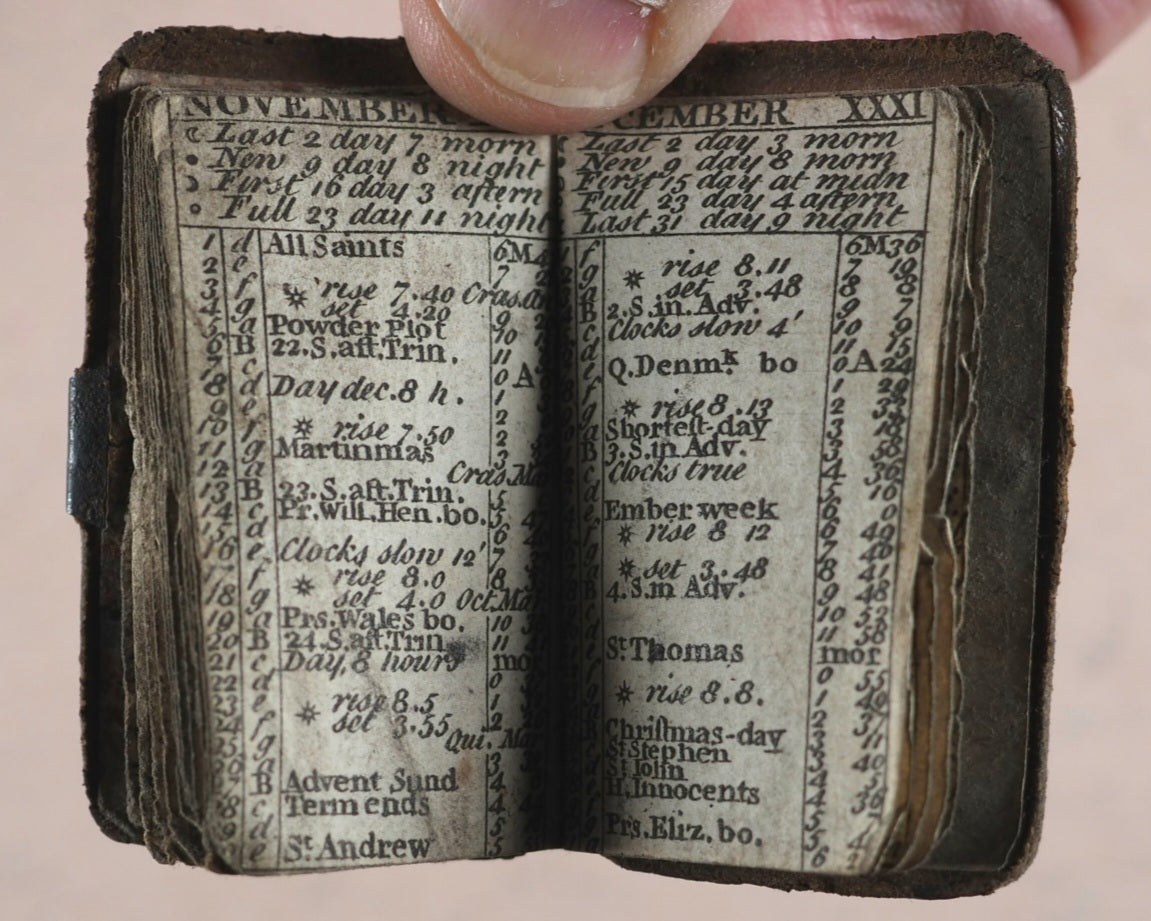 NOVEMBER
Last 2 day 7 morn
New 9 day 8 night
First 16 day 3 aftern
Full 23 day 11 night
1 d All Saints 6M
2 e 7
3 f rise 7.40
4 g set 4.20 9
5 a Powder Plot 10
6 B 22.S.aft.Trin. 11
7 c 0 A
8 d Day dec.8 h. 1
9 e 2
10 f rise 7.50 2
11 g Martinmas 3
12 a Cras.
13 B 23.S.aft.Trin. 5
14 c Pr.Will.Hen.bo. 5
15 d 6
16 e Clocks slow 12' 7
17 f rise 8.0 8
18 g set 4.0 Oct.
19 a Prs.Wales bo. 10
20 B 24.S.aft.Trin 11
21 c Day 8 hours mor
22 d 0
23 e rise 8.5 1
24 f set 3.55 2
25 g Qui.
B Advent Sund 4
c Term ends 4
d 5
e St Andrew 5
CEMBER XXXI
Last 2 day 3 morn
New 9 day 8 morn
First 15 day at midn
Full 23 day 4 aftern
Last 31 day 9 night
f 6M36
g rise 8.11 7 19
set 3.48 8 8
B 2.S.in.Adv. 9 7
c Clocks slow 4' 10 9
d 11 15
e Q.Denmk bo 0 A 24
f 1 29
g rise 8.13 2
a Shortest-day 3
B 3.S.in Adv. 3
c Clocks true 4 36
d 5 10
e Ember week 6 0
rise 8 12 6 49
g 7
set 3.48 8 41
B 4.S.in Adv. 9 48
10 52
11 58
St Thomas mor
0 55
rise 8.8. 1 49
2 37
Christmas-day 3 11
St Stephen 3 40
St John 4
H.Innocents 4
5
Prs.Eliz.bo. 5
6